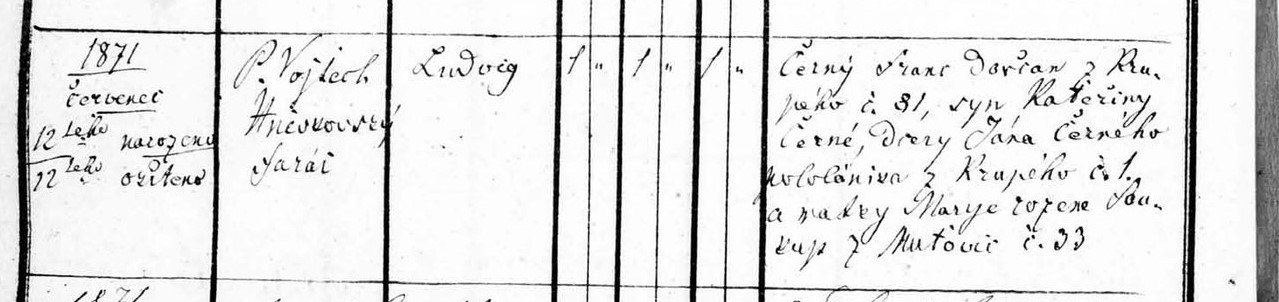 1871
červenec
12 tého narozeno
12 tého křtěno
P. Vojtech
Hněvkovský
farář
Ludvig
1 „ 1 „ 1 „
Černý Franc Dorčan z Kru-
pého č. 31, syn Kateřiny
Černé, dcery Jána Černého
pololánika z Krupého č. 1.
a matky Marye rozene Sou-
kup z č. 33
1871